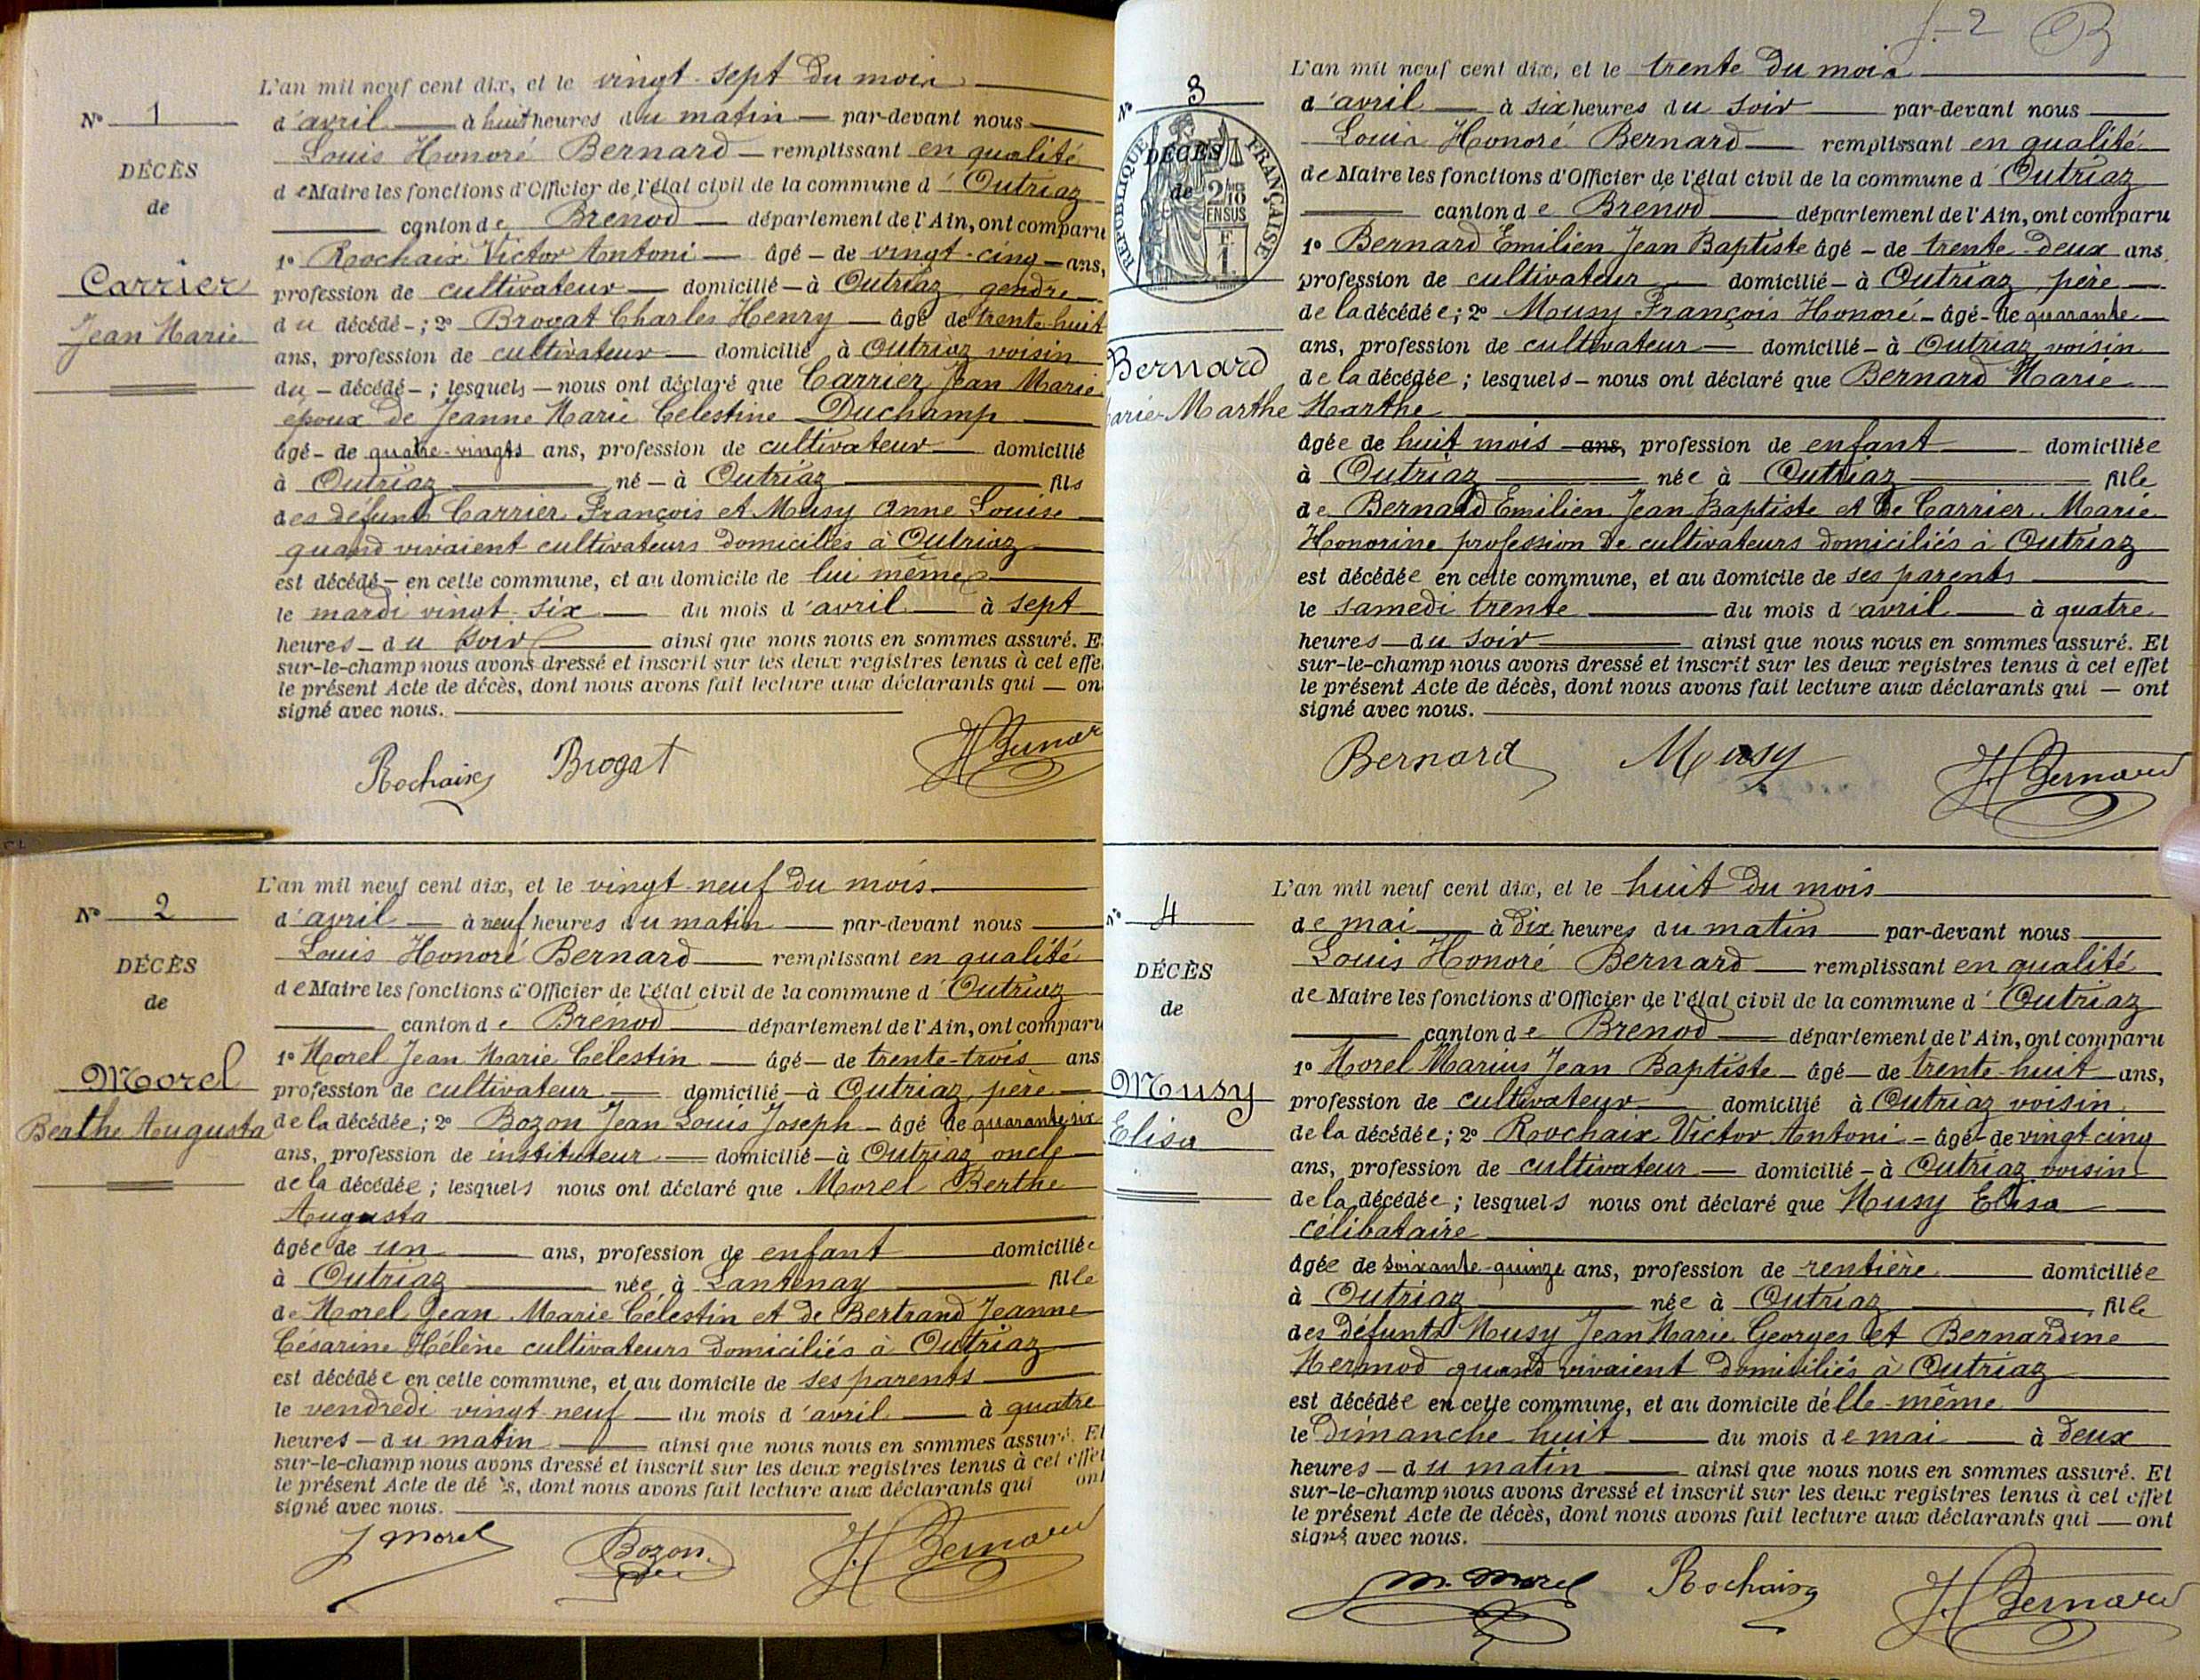 L'an mil neuf cent dix, et le vingt-sept du mois
N° 1
d'avril à huit heures du matin par-devant nous
DÉCÈS
Louis Honoré Bernard remplissant en qualité
de
de Maire les fonctions d'Officier de l'état civil de la commune d'Outriaz
canton de Brénod département de l'Ain, ont comparu
1° Rochaix Victor Antoni âgé de vingt-cinq ans,
Carrier
profession de cultivateur domicilié à Outriaz gendre
Jean Marie
du décédé ; 2° Brogat Charles Henry âgé de trente-huit
ans, profession de cultivateur domicilié à Outriaz voisin
du décédé ; lesquels nous ont déclaré que Carrier Jean Marie
époux de Jeanne Marie Célestine Duchamp
âgé de quatre-vingts ans, profession de cultivateur domicilié
à Outriaz né à Outriaz fils
des défunts Carrier François et Musy Anne Louise
quand vivaient cultivateurs domiciliés à Outriaz
est décédé en cette commune, et au domicile de lui même
le mardi vingt-six du mois d'avril à sept
heures du soir ainsi que nous nous en sommes assuré. E
sur-le-champ nous avons dressé et inscrit sur les deux registres tenus à cet effe
le présent Acte de décès, dont nous avons fait lecture aux déclarants qui on
signé avec nous.
Rochaix Brogat H Bernar
L'an mil neuf cent dix, et le vingt-neuf du mois
N° 2
d'avril à neuf heures du matin par-devant nous
Louis Honoré Bernard remplissant en qualité
DÉCÈS
de Maire les fonctions d'Officier de l'état civil de la commune d'Outriaz
de
canton de Brénod département de l'Ain, ont comparu
1° Morel Jean Marie Célestin âgé de trente-trois ans
Morel
profession de cultivateur domicilié à Outriaz, père
Berthe Augusta
de la décédée ; 2° Bozon Jean Louis Joseph âgé de quarante six
ans, profession de instituteur domicilié à Outriaz oncle
de la décédée ; lesquels nous ont déclaré que Morel Berthe
Augusta
âgée de un ans, profession de enfant domiciliée
à Outriaz née à Lantenay fille
de Morel Jean Marie Célestin et de Bertrand Jeanne
Césarine Hélène cultivateurs domiciliés à Outriaz
est décédée en cette commune, et au domicile de ses parents
le vendredi vingt-neuf du mois d'avril à quatre
heures du matin ainsi que nous nous en sommes assuré. Et
sur-le-champ nous avons dressé et inscrit sur les deux registres tenus à cet effet
le présent Acte de dé s, dont nous avons fait lecture aux déclarants qui ont
signé avec nous.
J Morel Bozon H Bernard
f. 2 B
L'an mil neuf cent dix, et le trente du mois
N° 3
d'avril à six heures du soir par-devant nous
RÉPUBLIQUE FRANÇAISE
DÉCÈS
de
2/10 EN SUS
F. 1
Louis Honoré Bernard remplissant en qualité
de Maire les fonctions d'Officier de l'état civil de la commune d'Outriaz
canton de Brenod département de l'Ain, ont comparu
1° Bernard Emilien Jean Baptiste âgé de trente-deux ans,
profession de cultivateur domicilié à Outriaz, père
de la décédée ; 2° Musy François Honoré âgé de quarante
ans, profession de cultivateur domicilié à Outriaz voisin
Bernard
de la décédée ; lesquels nous ont déclaré que Bernard Marie
arie-Marthe
Marthe
âgée de huit mois ans, profession de enfant domiciliée
à Outriaz née à Outriaz fille
de Bernard Emilien Jean Baptiste et de Carrier Marie
Honorine profession de cultivateurs domiciliés à Outriaz
est décédée en cette commune, et au domicile de ses parents
le samedi trente du mois d'avril à quatre
heures du soir ainsi que nous nous en sommes assuré. Et
sur-le-champ nous avons dressé et inscrit sur les deux registres tenus à cet effet
le présent Acte de décès, dont nous avons fait lecture aux déclarants qui ont
signé avec nous.
Bernard Musy H Bernard
L'an mil neuf cent dix, et le huit du mois
N° 4
de mai à dix heures du matin par-devant nous
DÉCÈS
Louis Honoré Bernard remplissant en qualité
de
de Maire les fonctions d'Officier de l'état civil de la commune d'Outriaz
canton de Brénod département de l'Ain, ont comparu
1° Morel Marius Jean Baptiste âgé de trente-huit ans,
Musy
profession de cultivateur domicilié à Outriaz voisin
Elisa
de la décédée ; 2° Rochaix Victor Antoni âgé de vingt cinq
ans, profession de cultivateur domicilié à Outriaz voisin
de la décédée ; lesquels nous ont déclaré que Musy Elisa
célibataire
âgée de soixante-quinze ans, profession de rentière domiciliée
à Outriaz née à Outriaz fille
des défunts Musy Jean Marie Georges et Bernardine
Mermod quand vivaient domiciliés à Outriaz
est décédée en cette commune, et au domicile d'elle-même
le dimanche huit du mois de mai à deux
heures du matin ainsi que nous nous en sommes assuré. Et
sur-le-champ nous avons dressé et inscrit sur les deux registres tenus à cet effet
le présent Acte de décès, dont nous avons fait lecture aux déclarants qui ont
signé avec nous.
M. Morel Rochaix H Bernard